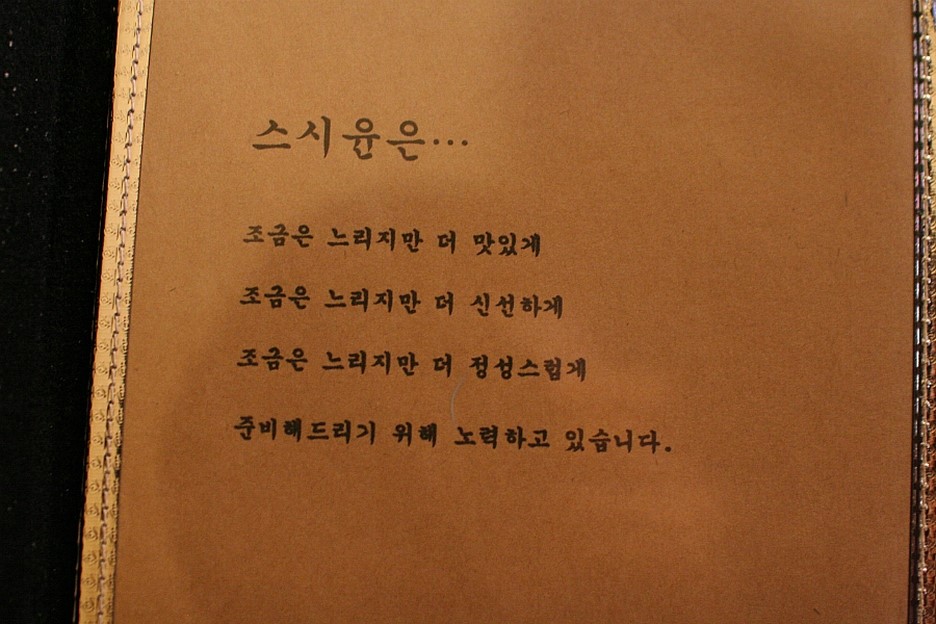 스시윤은...
조금은 느리지만 더 맛있게
조금은 느리지만 더 신선하게
조금은 느리지만 더 정성스럽게
준비해드리기 위해 노력하고 있습니다.